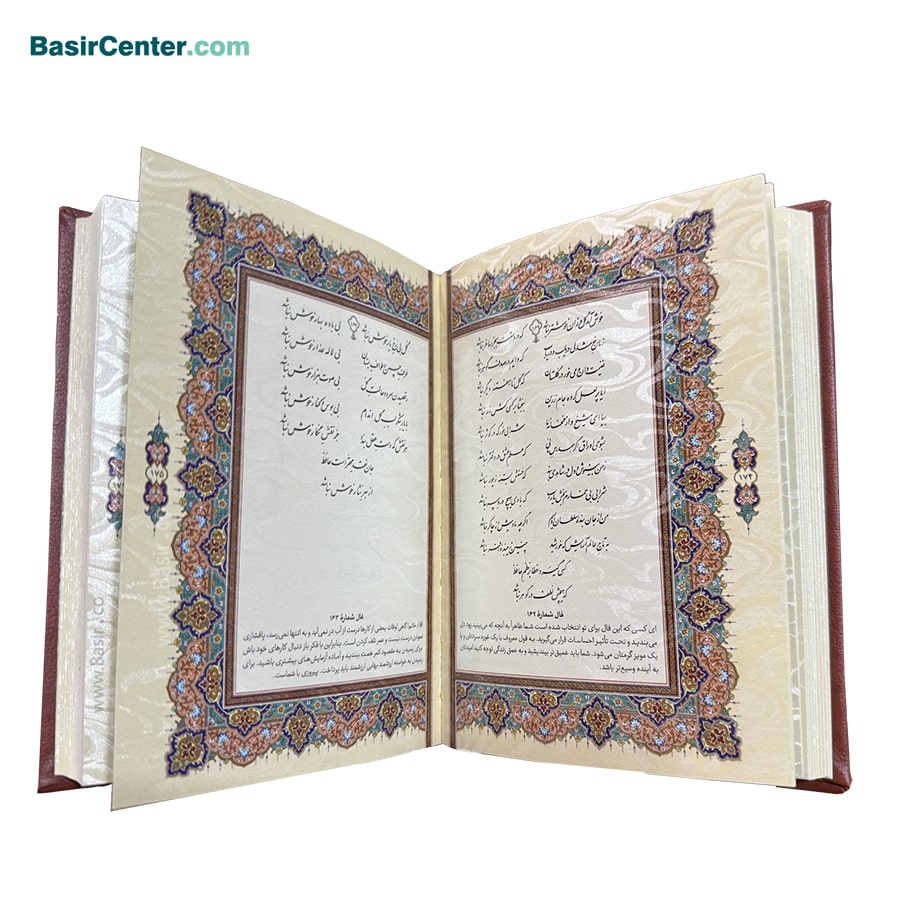 BasirCenter.com
خوش آمد گل وزان خوشتر نباشد که در دستت بجز ساغر نباشد
۱۶۲
زمان خوشدلی دریاب و دریاب که دایم در صدف گوهر نباشد
غنیمت دان و می خور در گلستان که گل تا هفته دیگر نباشد
ایا پر لعل کرده جام زرین ببخشا بر کسی کش زر نباشد
بیا ای شیخ و از خمخانه ما شرابی خور که در کوثر نباشد
بشوی اوراق اگر همدرس مایی که علم عشق در دفتر نباشد
ز من بنیوش و دل در شاهدی بند که حسنش بسته زیور نباشد
شرابی بی خمارم بخش یارب که با وی هیچ درد سر نباشد
من از جان بنده سلطان اویسم اگرچه یادش از چاکر نباشد
به تاج عالم آرایش که خورشید چنین زیبنده افسر نباشد
کسی گیرد خطا بر نظم حافظ
که هیچش لطف در گوهر نباشد
فال شمارهٔ ۱۶۲
ای کسی که این فال برای تو انتخاب شده است شما ظاهراً به آنچه که می‌بینید دل
می‌بندید و تحت تأثیر احساسات قرار می‌گیرید. به قول معروف با یک غوره سردتان و با
یک مویز گرمتان می‌شود. شما باید عمیق‌تر بیندیشید و به عمق زندگی توجه کنید امیدتان
به آینده وسیع‌تر باشد.
۱۷۴
گل بی رخ یار خوش نباشد بی باده بهار خوش نباشد
۱۶۳
طرف چمن و طواف بستان بی لاله عذار خوش نباشد
رقصیدن سرو و حالت گل بی صوت هزار خوش نباشد
با یار شکر لب گل اندام بی بوس و کنار خوش نباشد
هر نقش که دست عقل بندد جز نقش نگار خوش نباشد
جان نقد محقرست حافظ
از بهر نثار خوش نباشد
فال شمارهٔ ۱۶۳
آقا/ خانم! گاهی اوقات بعضی از کارها درست از آب در نمی‌آید و به انتها نمی‌رسد، پافشاری
نمودن درست نیست و عمر تلف کردن است. بنابراین با فکر باز دنبال کارهای خود باش
برای رسیدن به مقصود کمر همت ببندید و آماده آزمایش‌های بیشتری باشید. برای
رسیدن به خواسته ارزشمند بهایی ارزشمند باید پرداخت. پیروزی با شماست.
۱۷۵
www.Basir.co